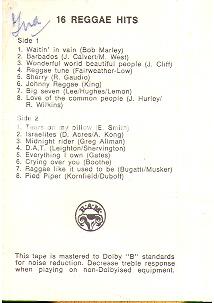 16 REGGAE HITS
Side 1
1. Waitin' in vain (Bob Marley)
2. Barbados (J. Calvert/M. West)
3. Wonderful world beautiful people (J. Cliff)
4. Reggae tune (Fairweather-Low)
5. Sherry (R. Gaudio)
6. Johnny Reggae (King)
7. Big seven (Lee/Hughes/Lemon)
8. Love of the common people (J. Hurley/
R. Wilkins)
Side 2
1. Tears on my pillow (E. Smith)
2. Israelites (D. Acres/A. Kong)
3. Midnight rider (Greg Allman)
4. D.A.T. (Leighton/Shervington)
5. Everything I own (Gates)
6. Crying over you (Boothe)
7. Raggae like it used to be (Bugatti/Musker)
8. Pied Piper (Kornfield/Duboff)
This tape is mastered to Dolby "B" standards
for noise reduction. Decrease treble response
when playing on non-Dolbyised equipment.